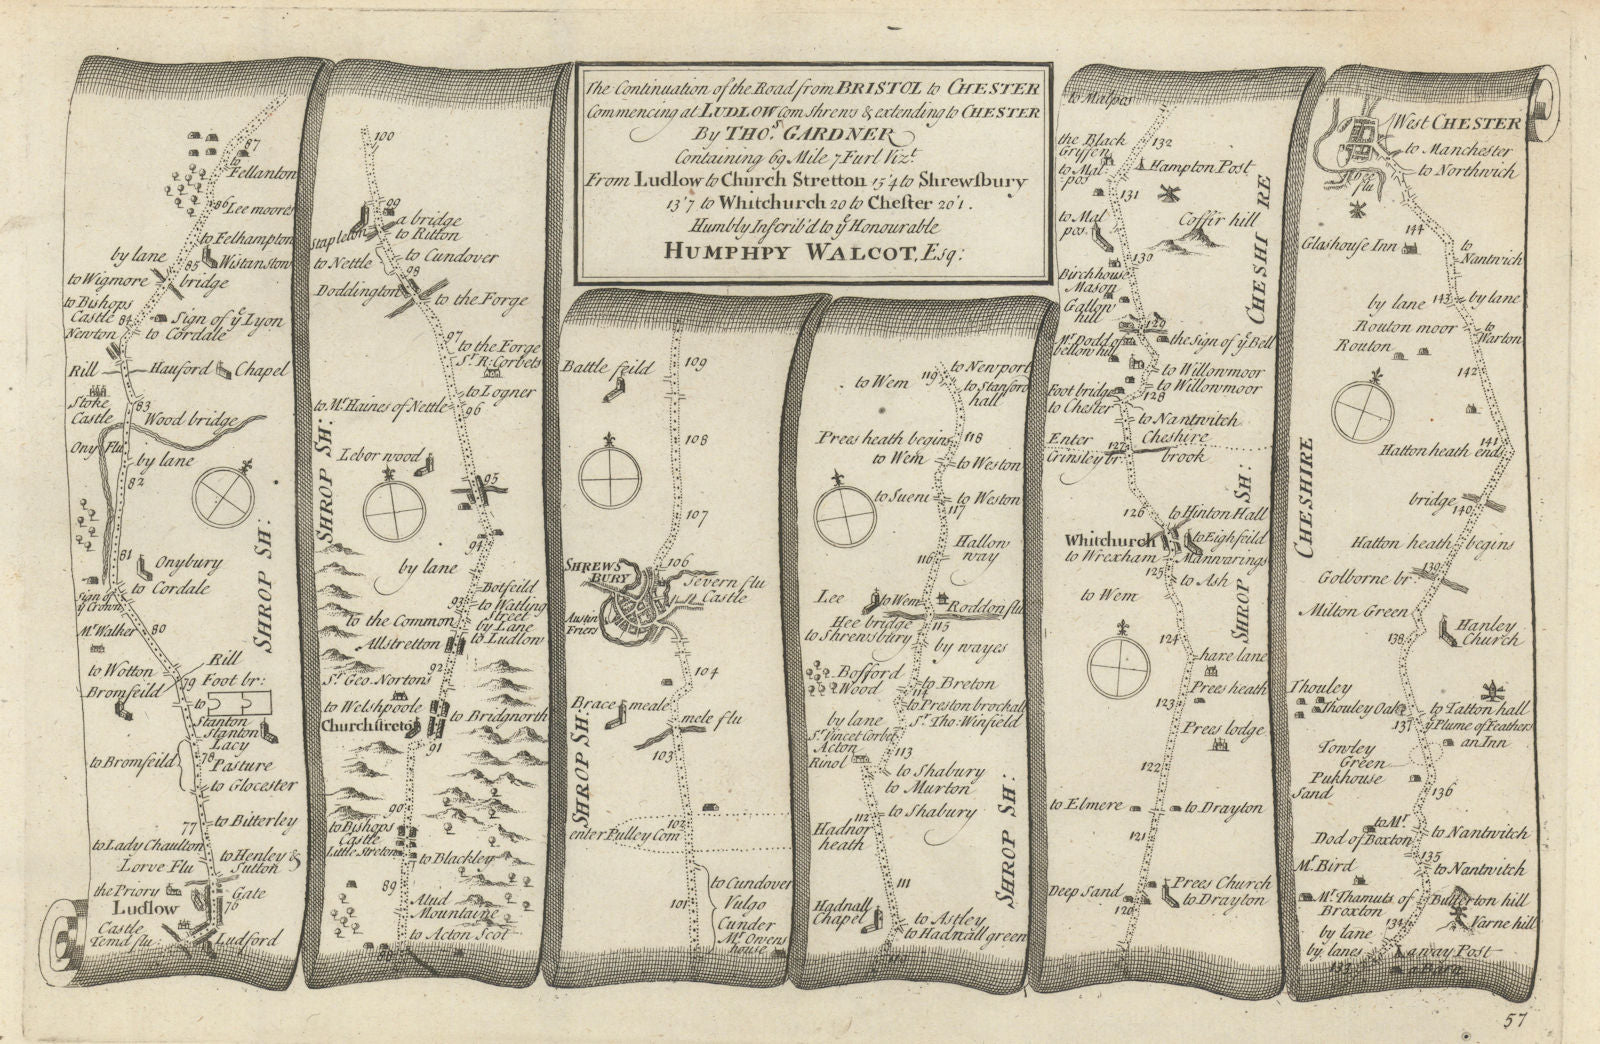 The Continuation of the Road from BRISTOL to CHESTER
Commencing at LUDLOW Com Shrews & extending to CHESTER
By THO.S GARDNER
Containing 69 Mile 7 Furl Viz.t
From Ludlow to Church Stretton 15'4 to Shrewsbury
13'7 to Whitchurch 20 to Chester 20'1.
Humbly Inscrib'd to y.e Honourable
HUMPHPY WALCOT, Esq:
87
to
Fellanton
86
Lee moores
to Felhampton
by lane
Wistanstow
85
to Wigmore
bridge
to Bishops
Castle
84
Sign of y.e Lyon
Newton
to Cordale
Rill
Hauford
Chapel
Stoke
Castle
83
Wood bridge
Ony Flu
by lane
82
81
Onybury
to Cordale
Sign of
y.e Crown
SHROP SH:
Mr Walker
80
to Wotton
Rill
79
Foot br:
Bromfeild
to
Stanton
Stanton
Lacy
to Bromfeild
78
Pasture
to Glocester
77
to Bitterley
to Lady Chaulton
Lorve Flu
to Henley &
Sutton
the Priory
Gate
Ludlow
76
Castle
Temd flu
Ludford
100
99
a bridge
Stapleton
to Ritton
to Nettle
to Cundover
98
Doddington
to the Forge
97
to the Forge
S.r R: Corbets
to Logner
to Mr Haines of Nettle
96
SHROP SH:
Lebor wood
95
94
by lane
Botfeild
93
to Watling
Street
to the Common
by Lane
Allstretton
to Ludlow
92
S.r Geo. Nortons
to Welshpoole
to Bridgnorth
Churchstreton
91
90
to Bishops
Castle
Little Streton
to Blackley
89
Atud
Mountaine
to Acton Scot
88
109
Battle feild
108
107
SHREWS
BURY
106
Severn flu
Castle
Austin
Friers
104
Brace meale
mele flu
103
SHROP SH:
102
enter Pulley Com
to Cundover
Vulgo
101
Cunder
Mr Owens
house
to Newport
119
to Wem
to Stanford
hall
118
Prees heath begins
to Wem
to Weston
to Suem
to Weston
117
Hallon
way
116
Lee
to Wem
Roddon flu
Hee bridge
115
to Shrewsbury
by wayes
Bofford
Wood
to Breton
114
to Preston brockall
by lane
S.r Tho: Winfield
S.r Vincet Corbet
Acton
Rinol
113
to Shabury
to Murton
112
to Shabury
Hadnor
heath
SHROP SH:
111
Hadnall
Chapel
to Astley
to Hadnall green
110
to Malpos
132
the Black
Gryffen
to Mal
pos
Hampton Post
131
to Mal
pos
Coffir hill
130
Birchhouse
Mason
Gallow
hill
CHESHI RE
129
Mr Dodd of
bellow hill
the Sign of y.e Bell
to Willowmoor
Foot bridge
to Willowmoor
to Chester
128
to Nantwitch
Enter
Cheshire
127
Crinsley br
brook
126
to Hinton Hall
SHROP SH:
Whitchurch
to Eighfeild
to Wrexham
Manwarings
125
to Ash
to Wem
124
hare lane
Prees heath
123
Prees lodge
122
to Elmere
to Drayton
121
Deep Sand
Prees Church
to Drayton
120
West CHESTER
to Manchester
to Northwich
Dee
flu
144
Glashouse Inn
to
Nantwich
by lane
143
by lane
Routon moor
to
Routon
Warton
142
CHESHIRE
141
Hatton heath ends
bridge
140
Hatton heath begins
139
Golborne br
Milton Green
Hanley
Church
138
Thouley
Thouley Oake
to Tatton hall
137
y.e Plume of Feathers
an Inn
Towley
Green
Pukhouse
Sand
136
to Mr
Dod of Boxton
to Nantwitch
135
Mr Bird
to Nantwitch
Mr Thamuts of
Broxton
Butterton hill
134
Varne hill
by lane
by lanes
a way Post
133
a Barn
57